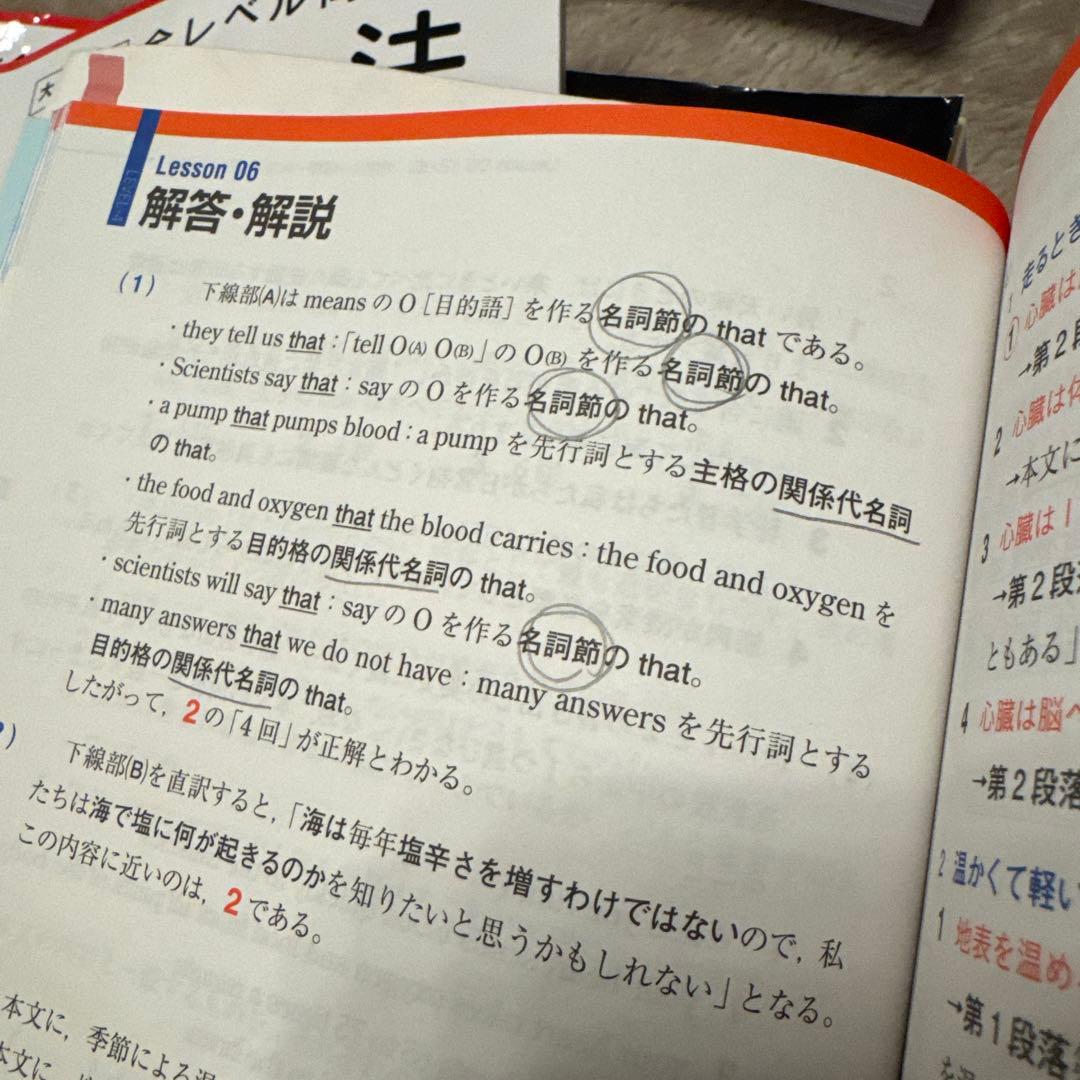 レベル
法
LEVEL-1
Lesson 06
解答・解説
(1) 下線部(A)は means の O［目的語］を作る名詞節の that である。
・they tell us that：「tell O(A) O(B)」の O(B) を作る名詞節の that。
・Scientists say that：say の O を作る名詞節の that。
・a pump that pumps blood：a pump を先行詞とする主格の関係代名詞
の that。
・the food and oxygen that the blood carries：the food and oxygen を
先行詞とする目的格の関係代名詞の that。
・scientists will say that：say の O を作る名詞節の that。
・many answers that we do not have：many answers を先行詞とする
目的格の関係代名詞の that。
したがって，2の「4回」が正解とわかる。
下線部(B)を直訳すると，「海は毎年塩辛さを増すわけではないので，私
たちは海で塩に何が起きるのかを知りたいと思うかもしれない」となる。
この内容に近いのは，2である。
本文に，季節による
本文に，
走るとき
1 心臓は
→第2段
2 心臓は
→本文に
3 心臓は1
→第2段落
ともある」
4 心臓は脳へ
→第2段落
2 温かくて軽い
1 地表を温め
→第1段落